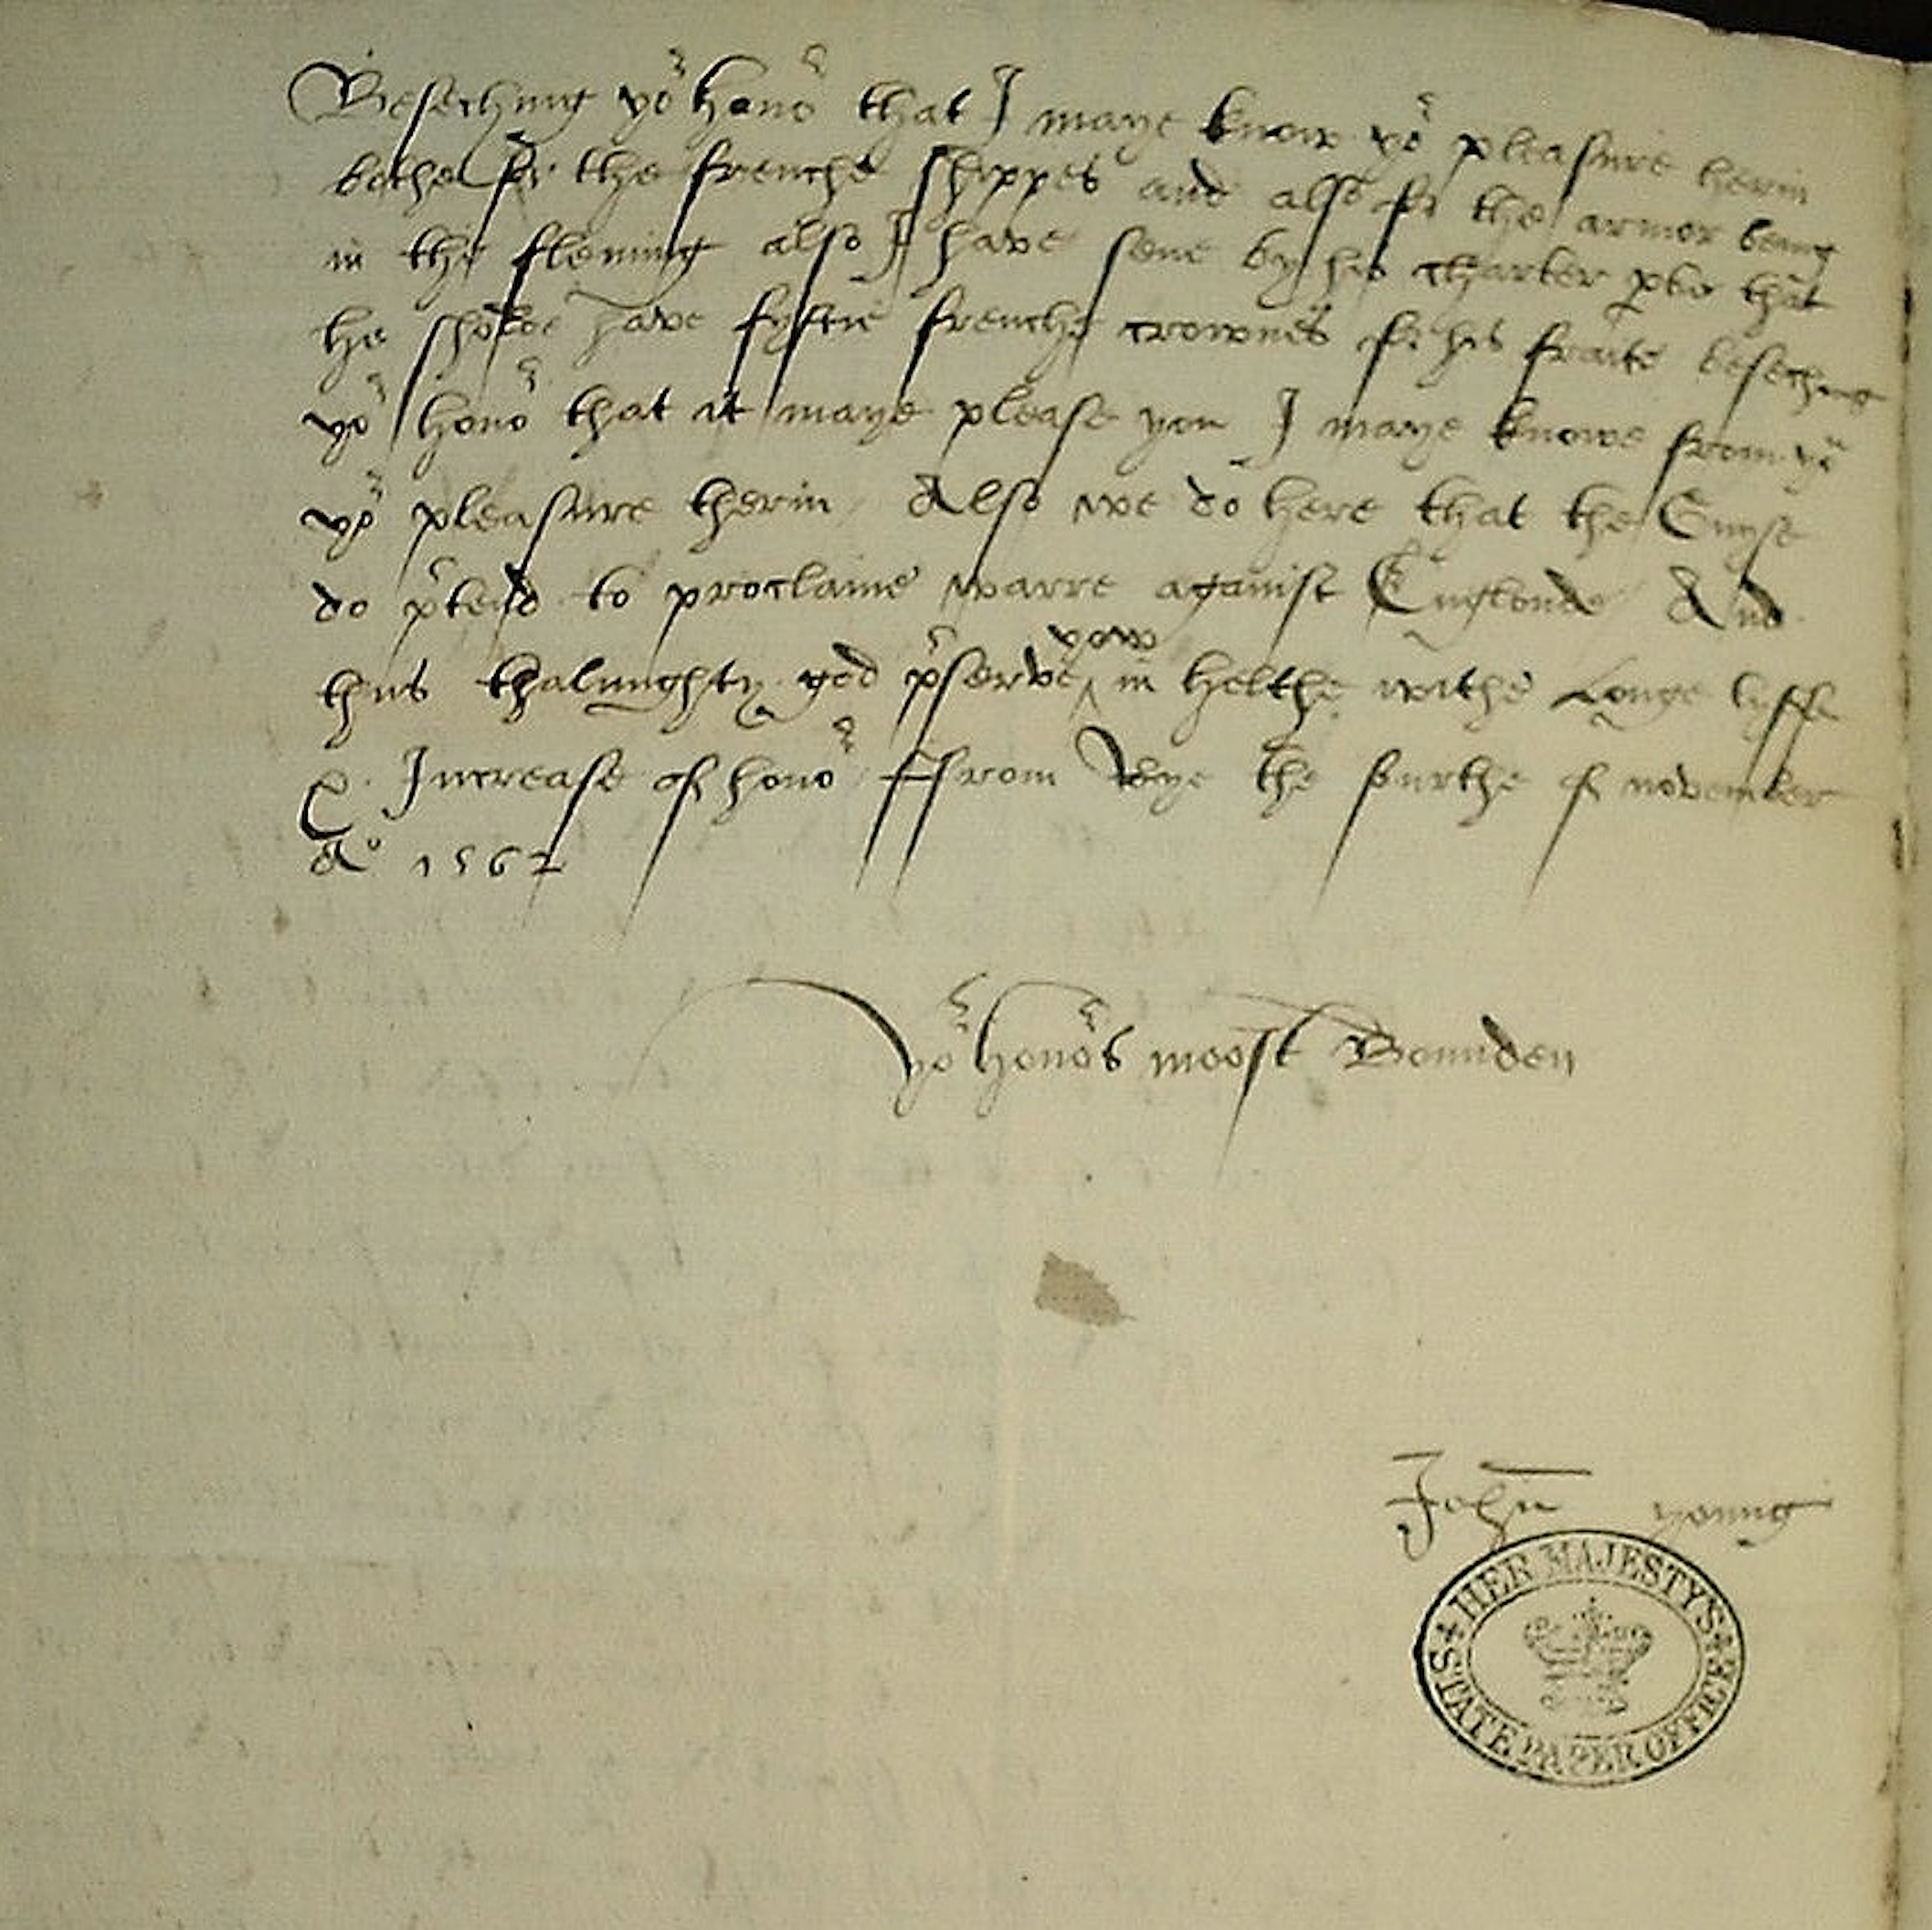 Beseching yor honor that I maye know yor pleasure herin
bothe for the frenche shippes and also for the armor being
in the fleming also I have sene by his charter ptie that
he sholde have fyftie frenche crownes for his fraite beseching
yor honor that it maye please you I maye knowe from yor
yor pleasure therin Also we do here that the Guyse
do ptend to proclaime warre against Englonde And
thus thalmighty god pserve yow in helthe withe Longe lyffe
& Increase of honor ffrom Rye the fourthe of november
Ao 1562
yor honors moost Bounden
John young
HER MAJESTY'S STATE PAPER OFFICE